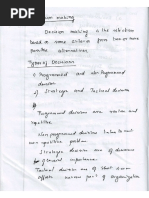 ion making
Decision making is the selection
based on some criteria from two or more
possible alternatives.
Types of Decisions
1) Programmed and Non Programmed
decision
2) Strategic and Tactical decision
Programmed decision are routine and
repetitive.
Non programmed decision
non repetitive problem
Strategic decision are of decision
of general importance.
Tactical decision are of that
affects various part of Organization